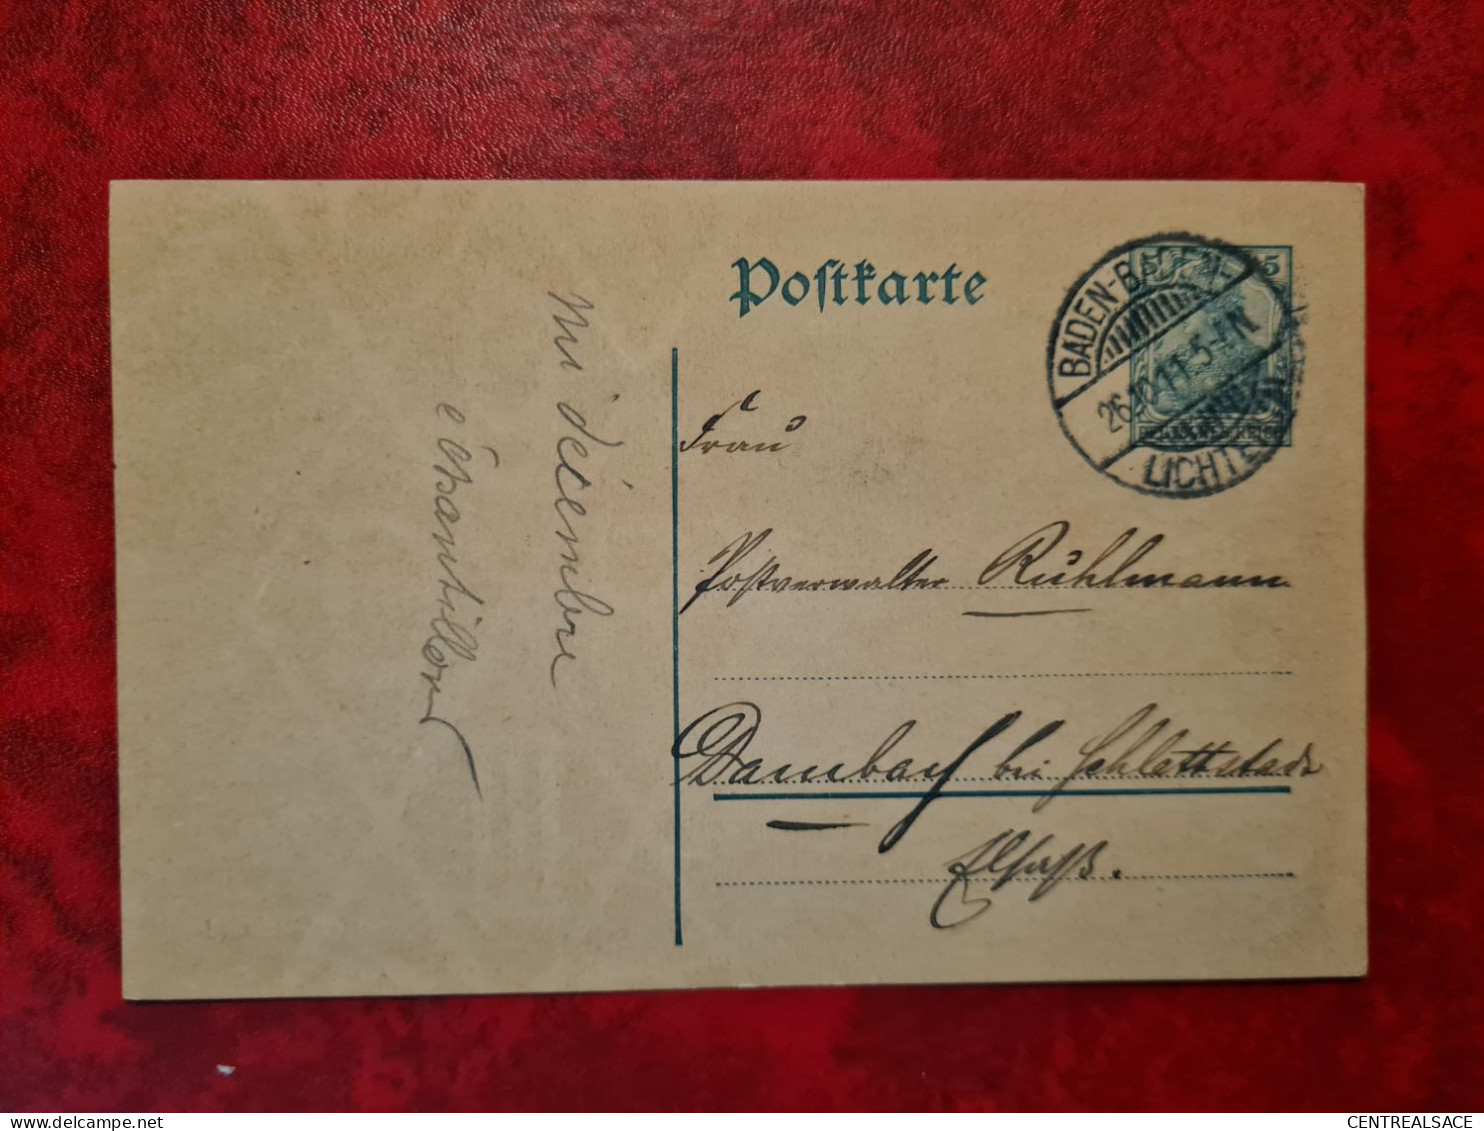 Postkarte
5
BADEN-BADEN
26.10.11.5-6N
LICHTENTAL
Frau
Postverwalter Ruhlmann
Dambach bei Schlettstadt
Elsaß.
mi décembre
échantillon
delcampe.net
CENTREALSACE